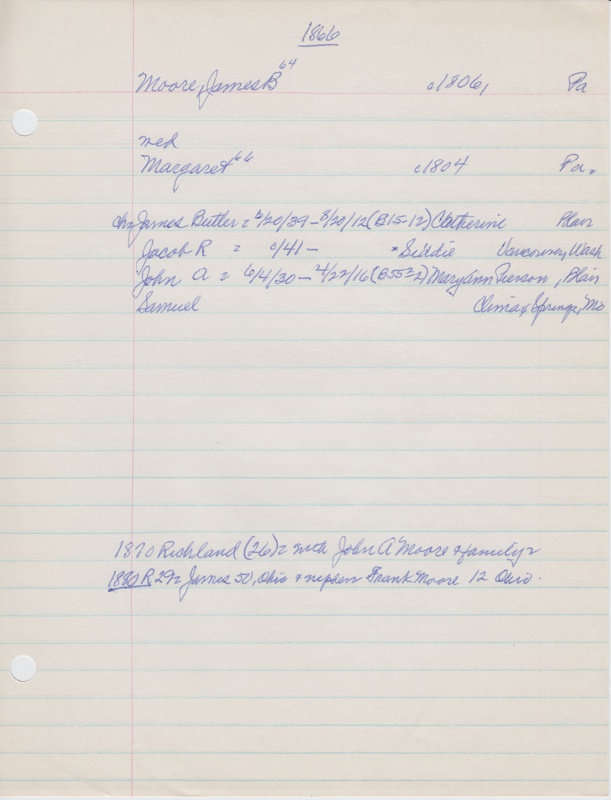 1866
Moore, James B 64 c1806, Pa
med
Margaret 66 c1804 Pa.
ch= James Butler = 6/20/39 - 8/20/12 (B15-12) Catherine Blair
Jacob R = c/41 - * Siddie Vancouver, Wash
John A = 6/4/30 - 4/22/16 (B552-2) Mary Ann Pierson, Blair
Samuel Climax Springs, Mo
1870 Richland (26) = with John A Moore & family =
1880 R 29 = James 50, Ohio & nephew Frank Moore 12 Ohio.